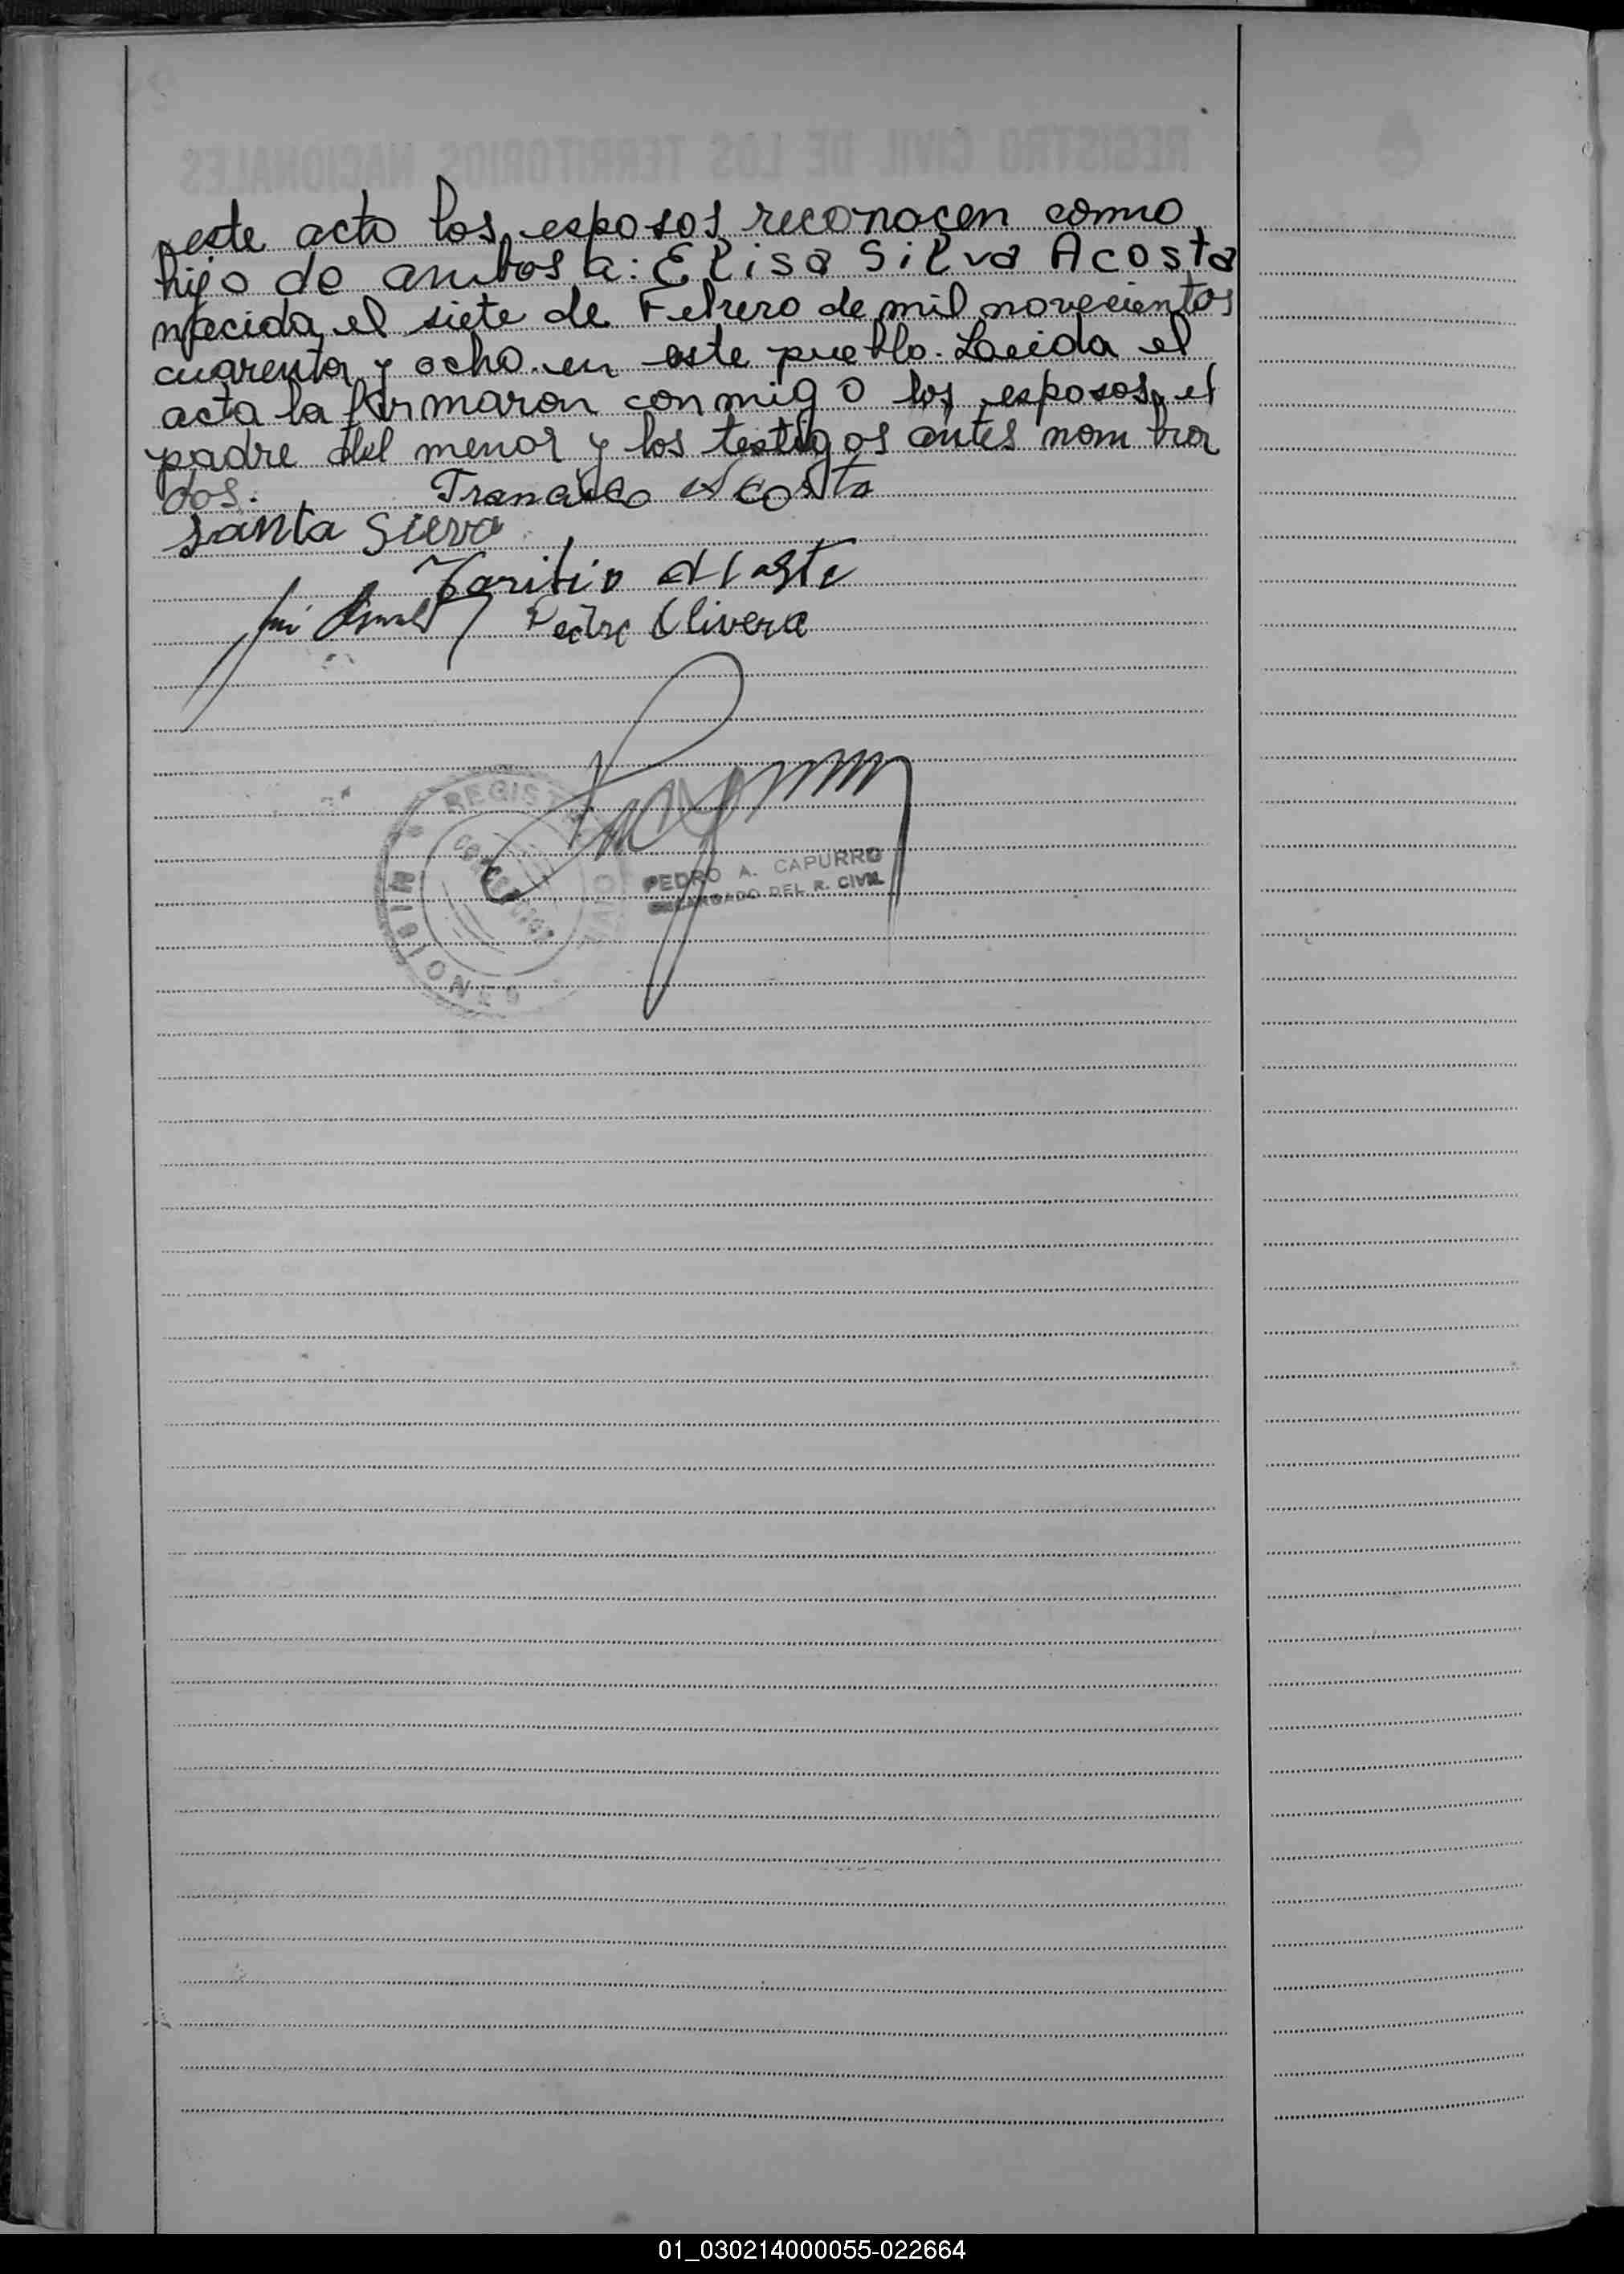 REGISTRO CIVIL DE LOS TERRITORIOS NACIONALES
este acto los esposos reconocen como
hijo de ambos a: Elisa Silva Acosta
nacida el siete de Febrero de mil novecientos
cuarenta y ocho en este pueblo. Leida el
acta la firmaron conmigo los esposos, el
padre del menor y los testigos antes nombra
dos.
Francisco Acosta
Santa Silva
Toribio Acosta
Pedro Olivera
REGISTRO CIVIL
MISIONES
PEDRO A. CAPURRO
ENCARGADO DEL R. CIVIL
01_030214000055-022664